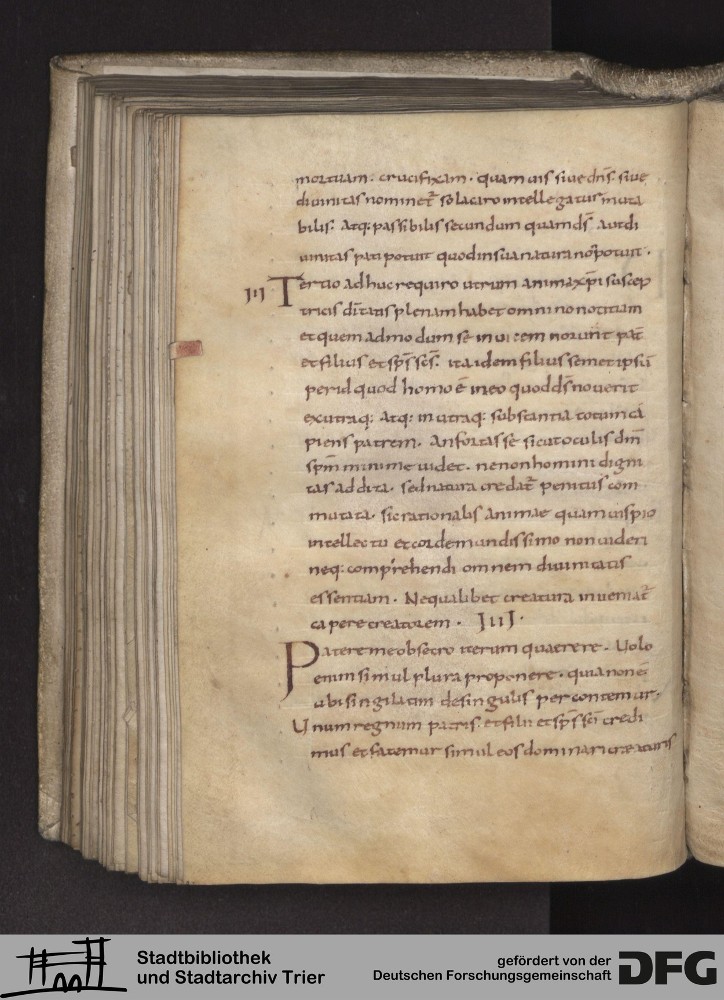 mortuam. crucifixam. quam uis siue dn̄s. siue
diuinitas nominet̄ sola caro intellegatur muta
bilis. atq: passibilis secundum quam ds̄ aut di
uinitas pati potuit quod in sua natura nō potuit.
III Tertio ad huc requiro utrum anima xp̄i suscep
tricis diuitatis plenam habet omnino notitiam
et quem admodum se inuicem norunt pat̄
et filius et sp̄s sc̄s. ita idem filius semet ipsū
per id quod homo ē in eo quod ds̄ nouerit
ex utraq: atq: in utraq: substantia totum ca
piens patrem. An fortasse sicut oculis dn̄i
sp̄m minime uidet. ne non homini digni
tas addita. sed natura credat̄ penitus com
mutata. sic rationalis animae quamuis pio
intellectu et corde mundissimo non uideri
neq: comprehendi omnem diuinitatis
essentiam. Ne qualibet creatura inueniat̄
capere creatorem. IIII.
Patere me obsecro iterum quaerere. Uolo
enim simul plura proponere. quia non ē
ubi singilatim de singulis percontemur.
Unum regnum patris. et filii et sp̄s sc̄i credi
mus et fatemur simul eos dominari creaturis
Stadtbibliothek
und Stadtarchiv Trier
gefördert von der
Deutschen Forschungsgemeinschaft
DFG